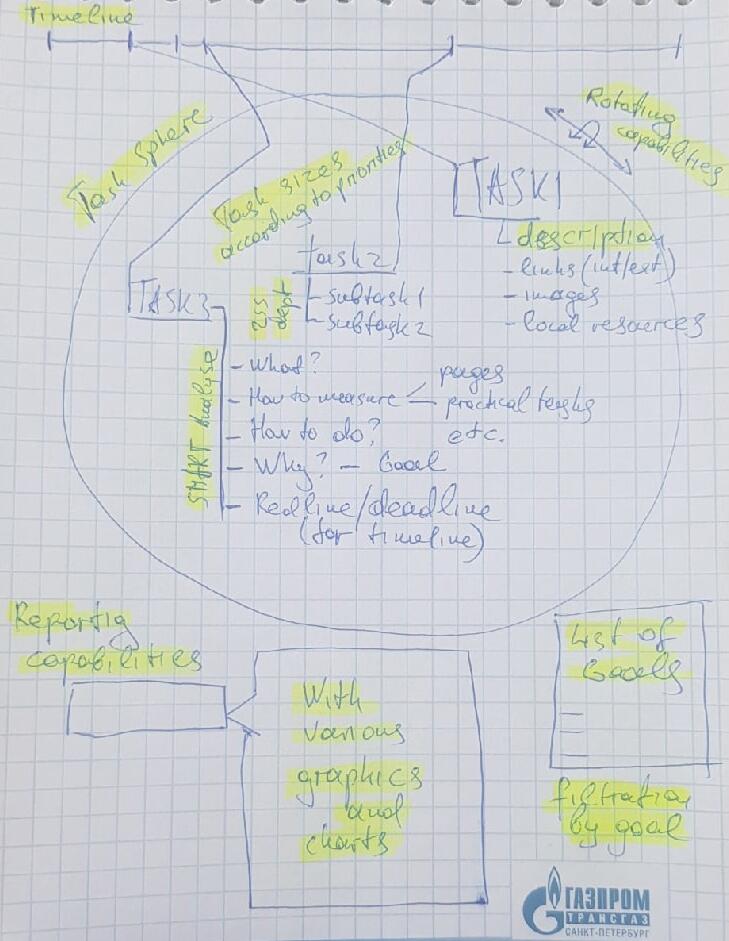 Timeline
Rotating
capabilities
Task Sphere
Task sizes
according to priorities
TASK1
description
- links (int/ext)
- images
- local resources
task2
- subtask1
- subtask2
dept
TASK3
SMART Analyse
- What?
- How to measure
pages
practical
etc.
- How to do?
- Why? - Goal
- Redline/deadline
(for timeline)
Reportig
capabilities
With
various
graphics
and
charts
List of
Goals
filtration
by goal
ГАЗПРОМ
ТРАНСГАЗ
САНКТ-ПЕТЕРБУРГ